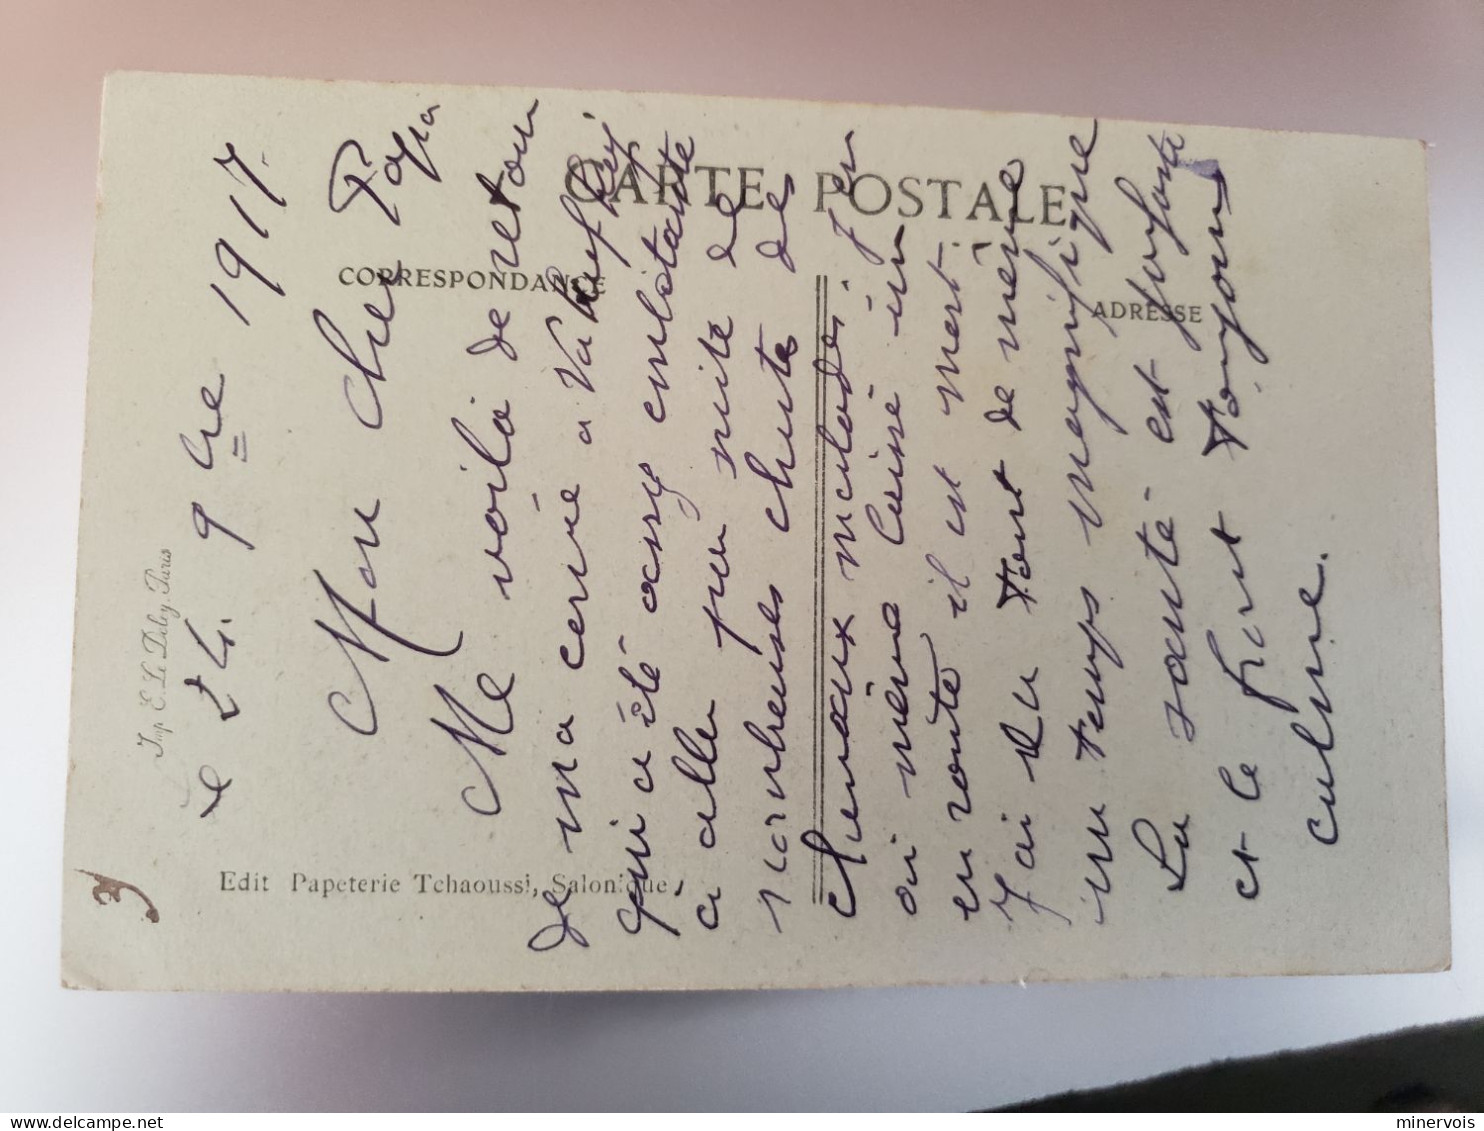 CARTE POSTALE
CORRESPONDANCE
ADRESSE
Imp. E. Le Deley, Paris
Edit Papeterie Tchaoussi, Salonique
3
Le 24 9bre 1917.
Mon cher Papa
Me voilà de retour
de ma corvée a
qui a été assez embêtante
a aller par suite de
nombreuses chutes de
chevaux malades j'en
ai même laissé un
en route il est mort.
J'ai eu tout de même
un temps magnifique
La santé est parfaite
et le front toujours
calme.
minervois